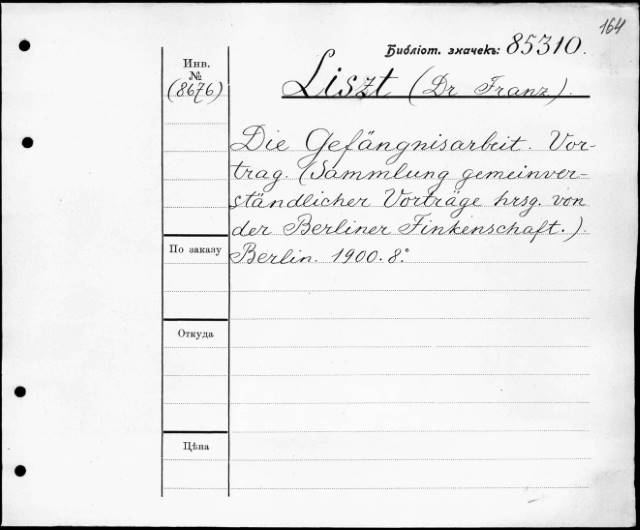 164
Библіот. значекъ: 85310.
Инв.
№
(8676)
Liszt (Dr Franz).
Die Gefängnisarbeit. Vor-
trag. (Sammlung gemeinver-
ständlicher Vorträge hrsg. von
der Berliner Finkenschaft.)
По заказу
Berlin. 1900. 8.°
Откуда
Цѣна